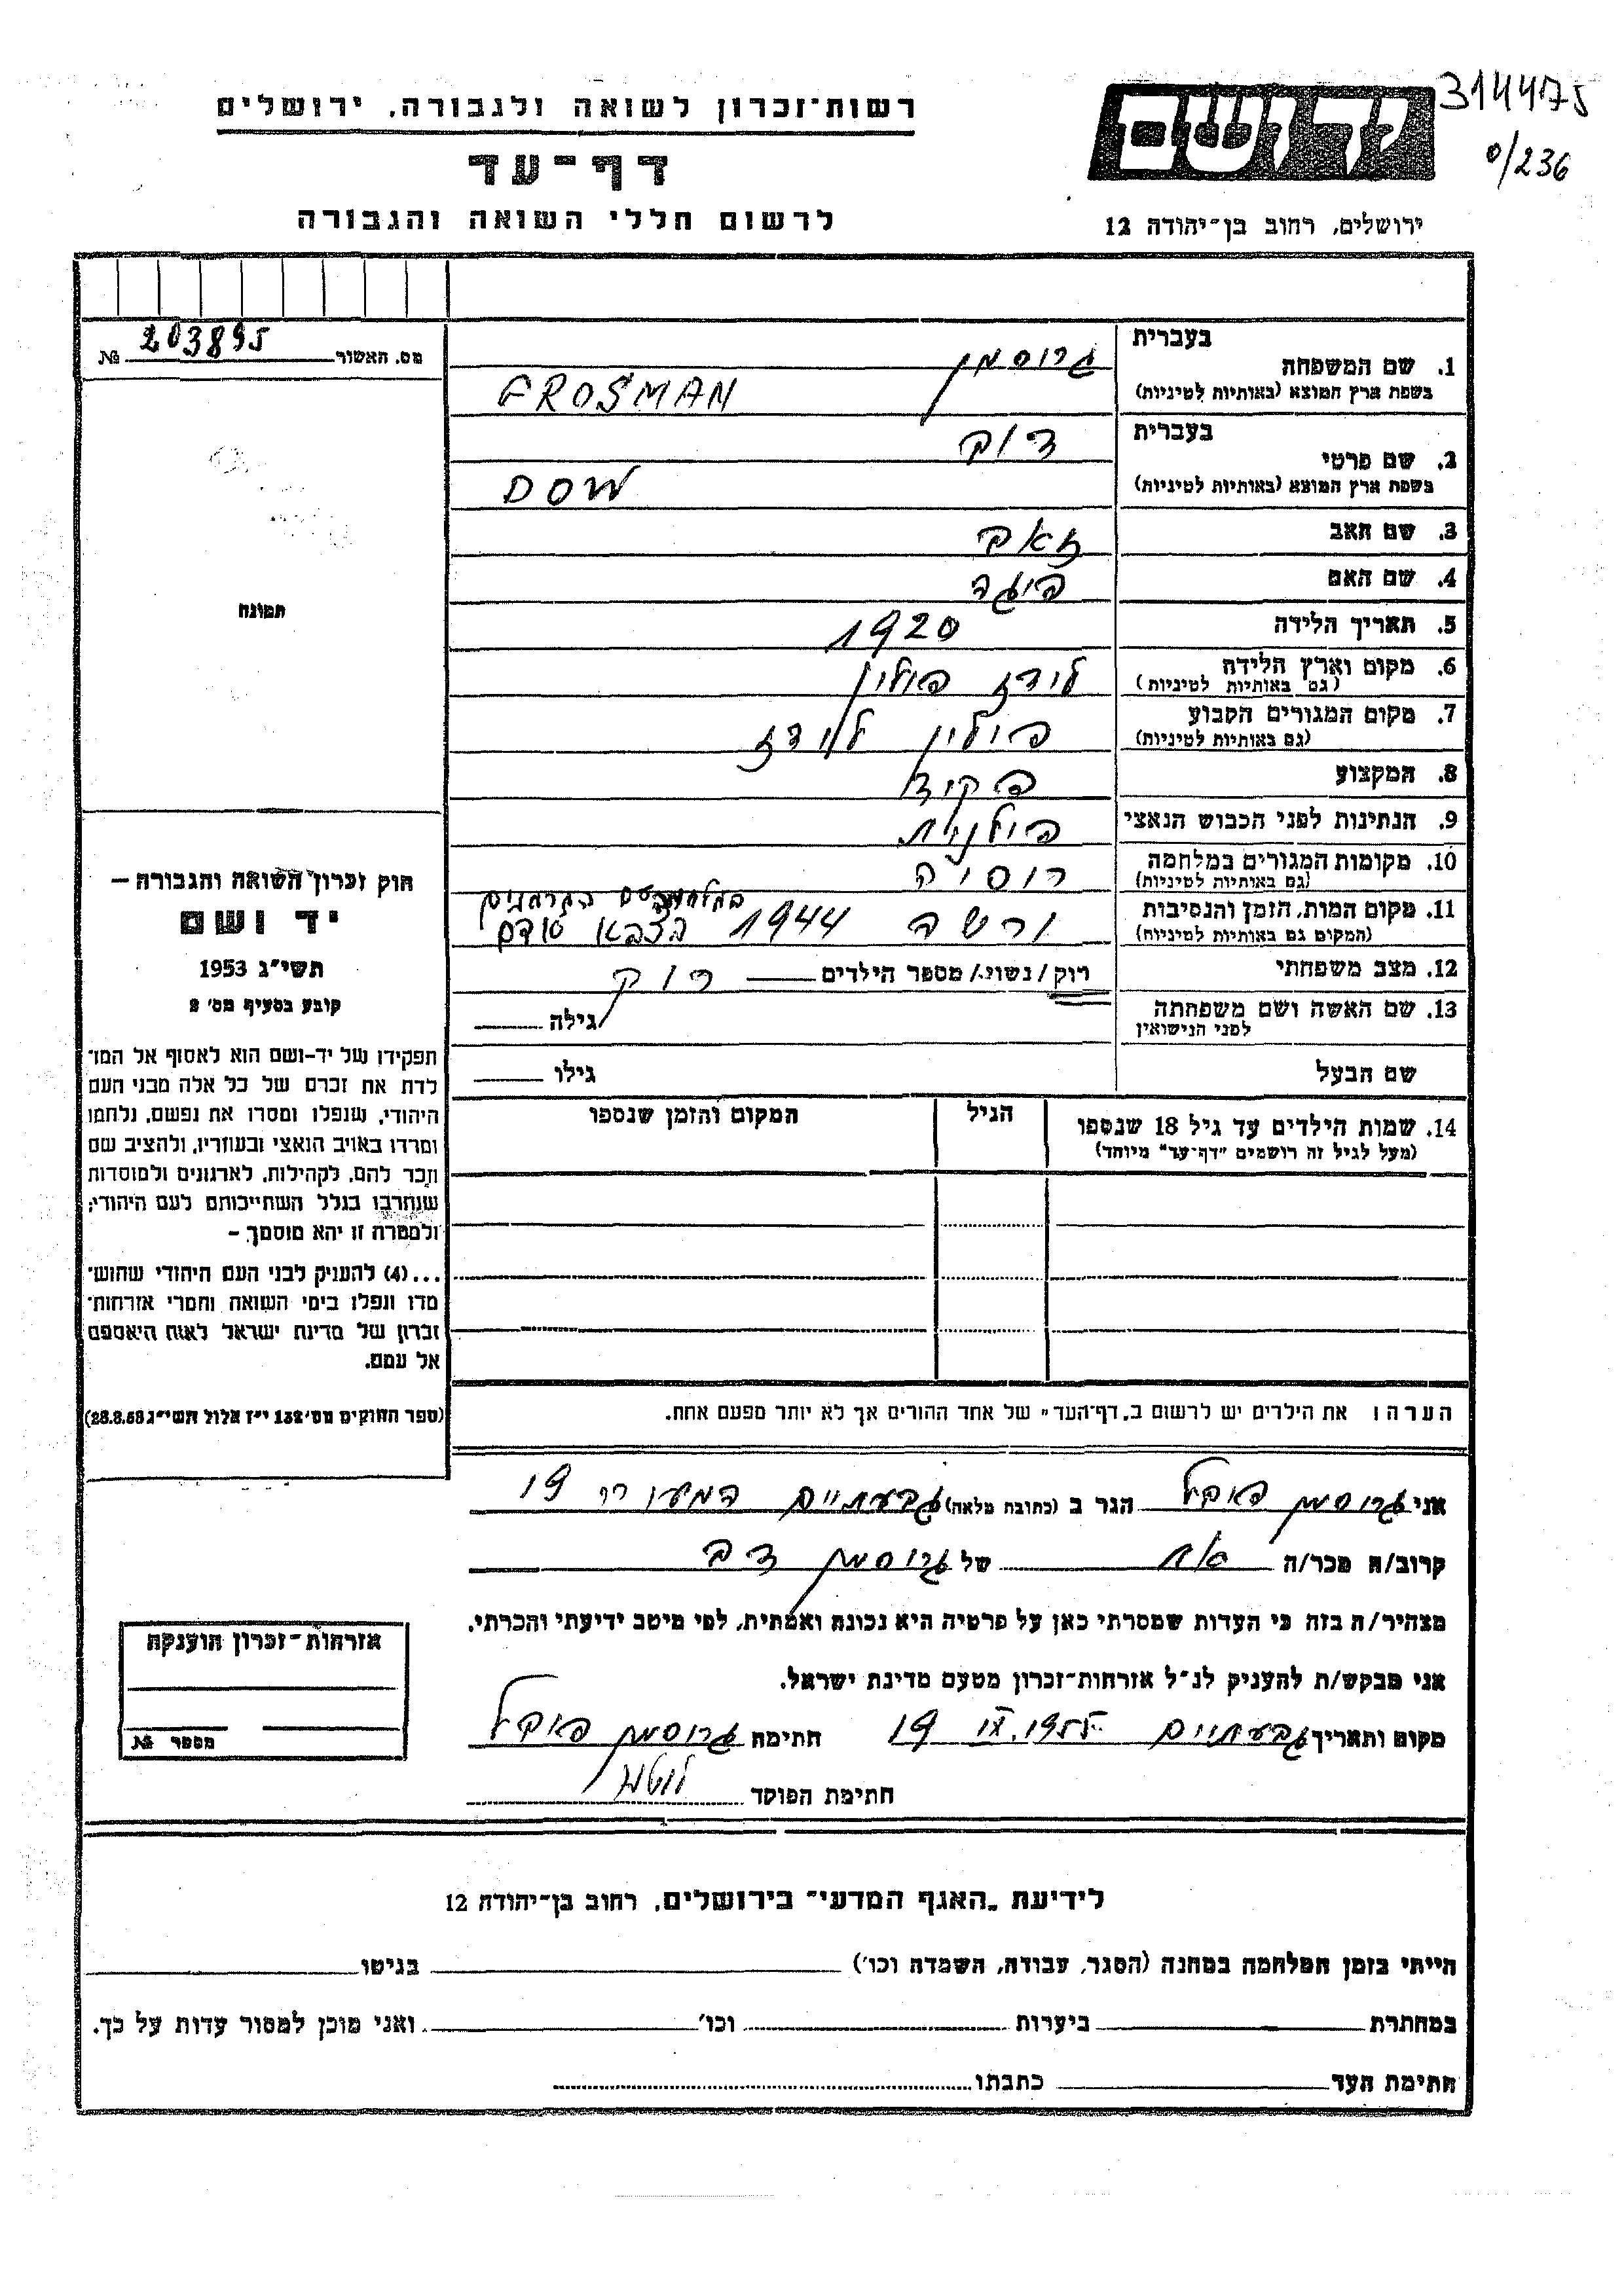 314475
0/236
יד ושם
ירושלים, רחוב בן-יהודה 12
רשות-זכרון לשואה ולגבורה, ירושלים
דף-עד
לרשום חללי השואה והגבורה
מס. האשור № 203895
תמונה
חוק זכרון השואה והגבורה —
יד ושם
תשי״ג 1953
קובע בסעיף מס׳ 2
תפקידו של יד-ושם הוא לאסוף אל המו־
לדת את זכרם של כל אלה מבני העם
היהודי, שנפלו ומסרו את נפשם, נלחמו
ומרדו באויב הנאצי ובעוזריו, ולהציב שם
וזכר להם, לקהילות, לארגונים ולמוסדות
שנחרבו בגלל השתייכותם לעם היהודי;
ולמטרה זו יהא מוסמך —
...(4) להעניק לבני העם היהודי שהוש־
מדו ונפלו בימי השואה והמרי אזרחות־
זכרון של מדינת ישראל לאות היאספם
אל עמם.
(ספר החוקים מס׳ 132 י״ז אלול תשי״ג 28.8.53)
בעברית
1. שם המשפחה גרוסמן
בשפת ארץ המוצא (באותיות לטיניות) GROSMAN
בעברית
2. שם פרטי דוב
בשפת ארץ המוצא (באותיות לטיניות) DOW
3. שם האב זאב
4. שם האם פיגה
5. תאריך הלידה 1920
6. מקום וארץ הלידה לודז פולין
(גם באותיות לטיניות)
7. מקום המגורים הקבוע פולין לודז
(גם באותיות לטיניות)
8. המקצוע פקיד
9. הנתינות לפני הכבוש הנאצי פולנית
10. מקומות המגורים במלחמה רוסיה
(גם באותיות לטיניות)
11. מקום המות, הזמן והנסיבות ורשה 1944 בצבא
(המקום גם באותיות לטיניות)
12. מצב משפחתי רוק/נשוי/מספר הילדים רוק
13. שם האשה ושם משפחתה גילה
לפני הנישואין
שם הבעל גילו
14. שמות הילדים עד גיל 18 שנספו הגיל המקום והזמן שנספו
(מעל לגיל זה רושמים ״דף-עד״ מיוחד)
הערה: את הילדים יש לרשום ב„דף-העד״ של אחד ההורים אך לא יותר מפעם אחת.
אני גרוסמן הגר ב (כתובת מלאה) גבעתיים המעורר 19
קרוב/ה מכר/ה אח של גרוסמן דב
מצהיר/ה בזה כי העדות שמסרתי כאן על פרטיה היא נכונה ואמתית, לפי מיטב ידיעתי והכרתי.
אני מבקש/ת להעניק לנ״ל אזרחות-זכרון מטעם מדינת ישראל.
מקום ותאריך גבעתיים 19 חתימה גרוסמן
חתימת הפוקד
אזרחות-זכרון הוענקה
מספר №
לידיעת „האגף המדעי״ בירושלים, רחוב בן-יהודה 12
הייתי בזמן המלחמה במחנה (הסגר, עבודה, השמדה וכו׳) בגיטו
במחתרת ביערות וכו׳ ואני מוכן למסור עדות על כך.
חתימת העד כתבתו